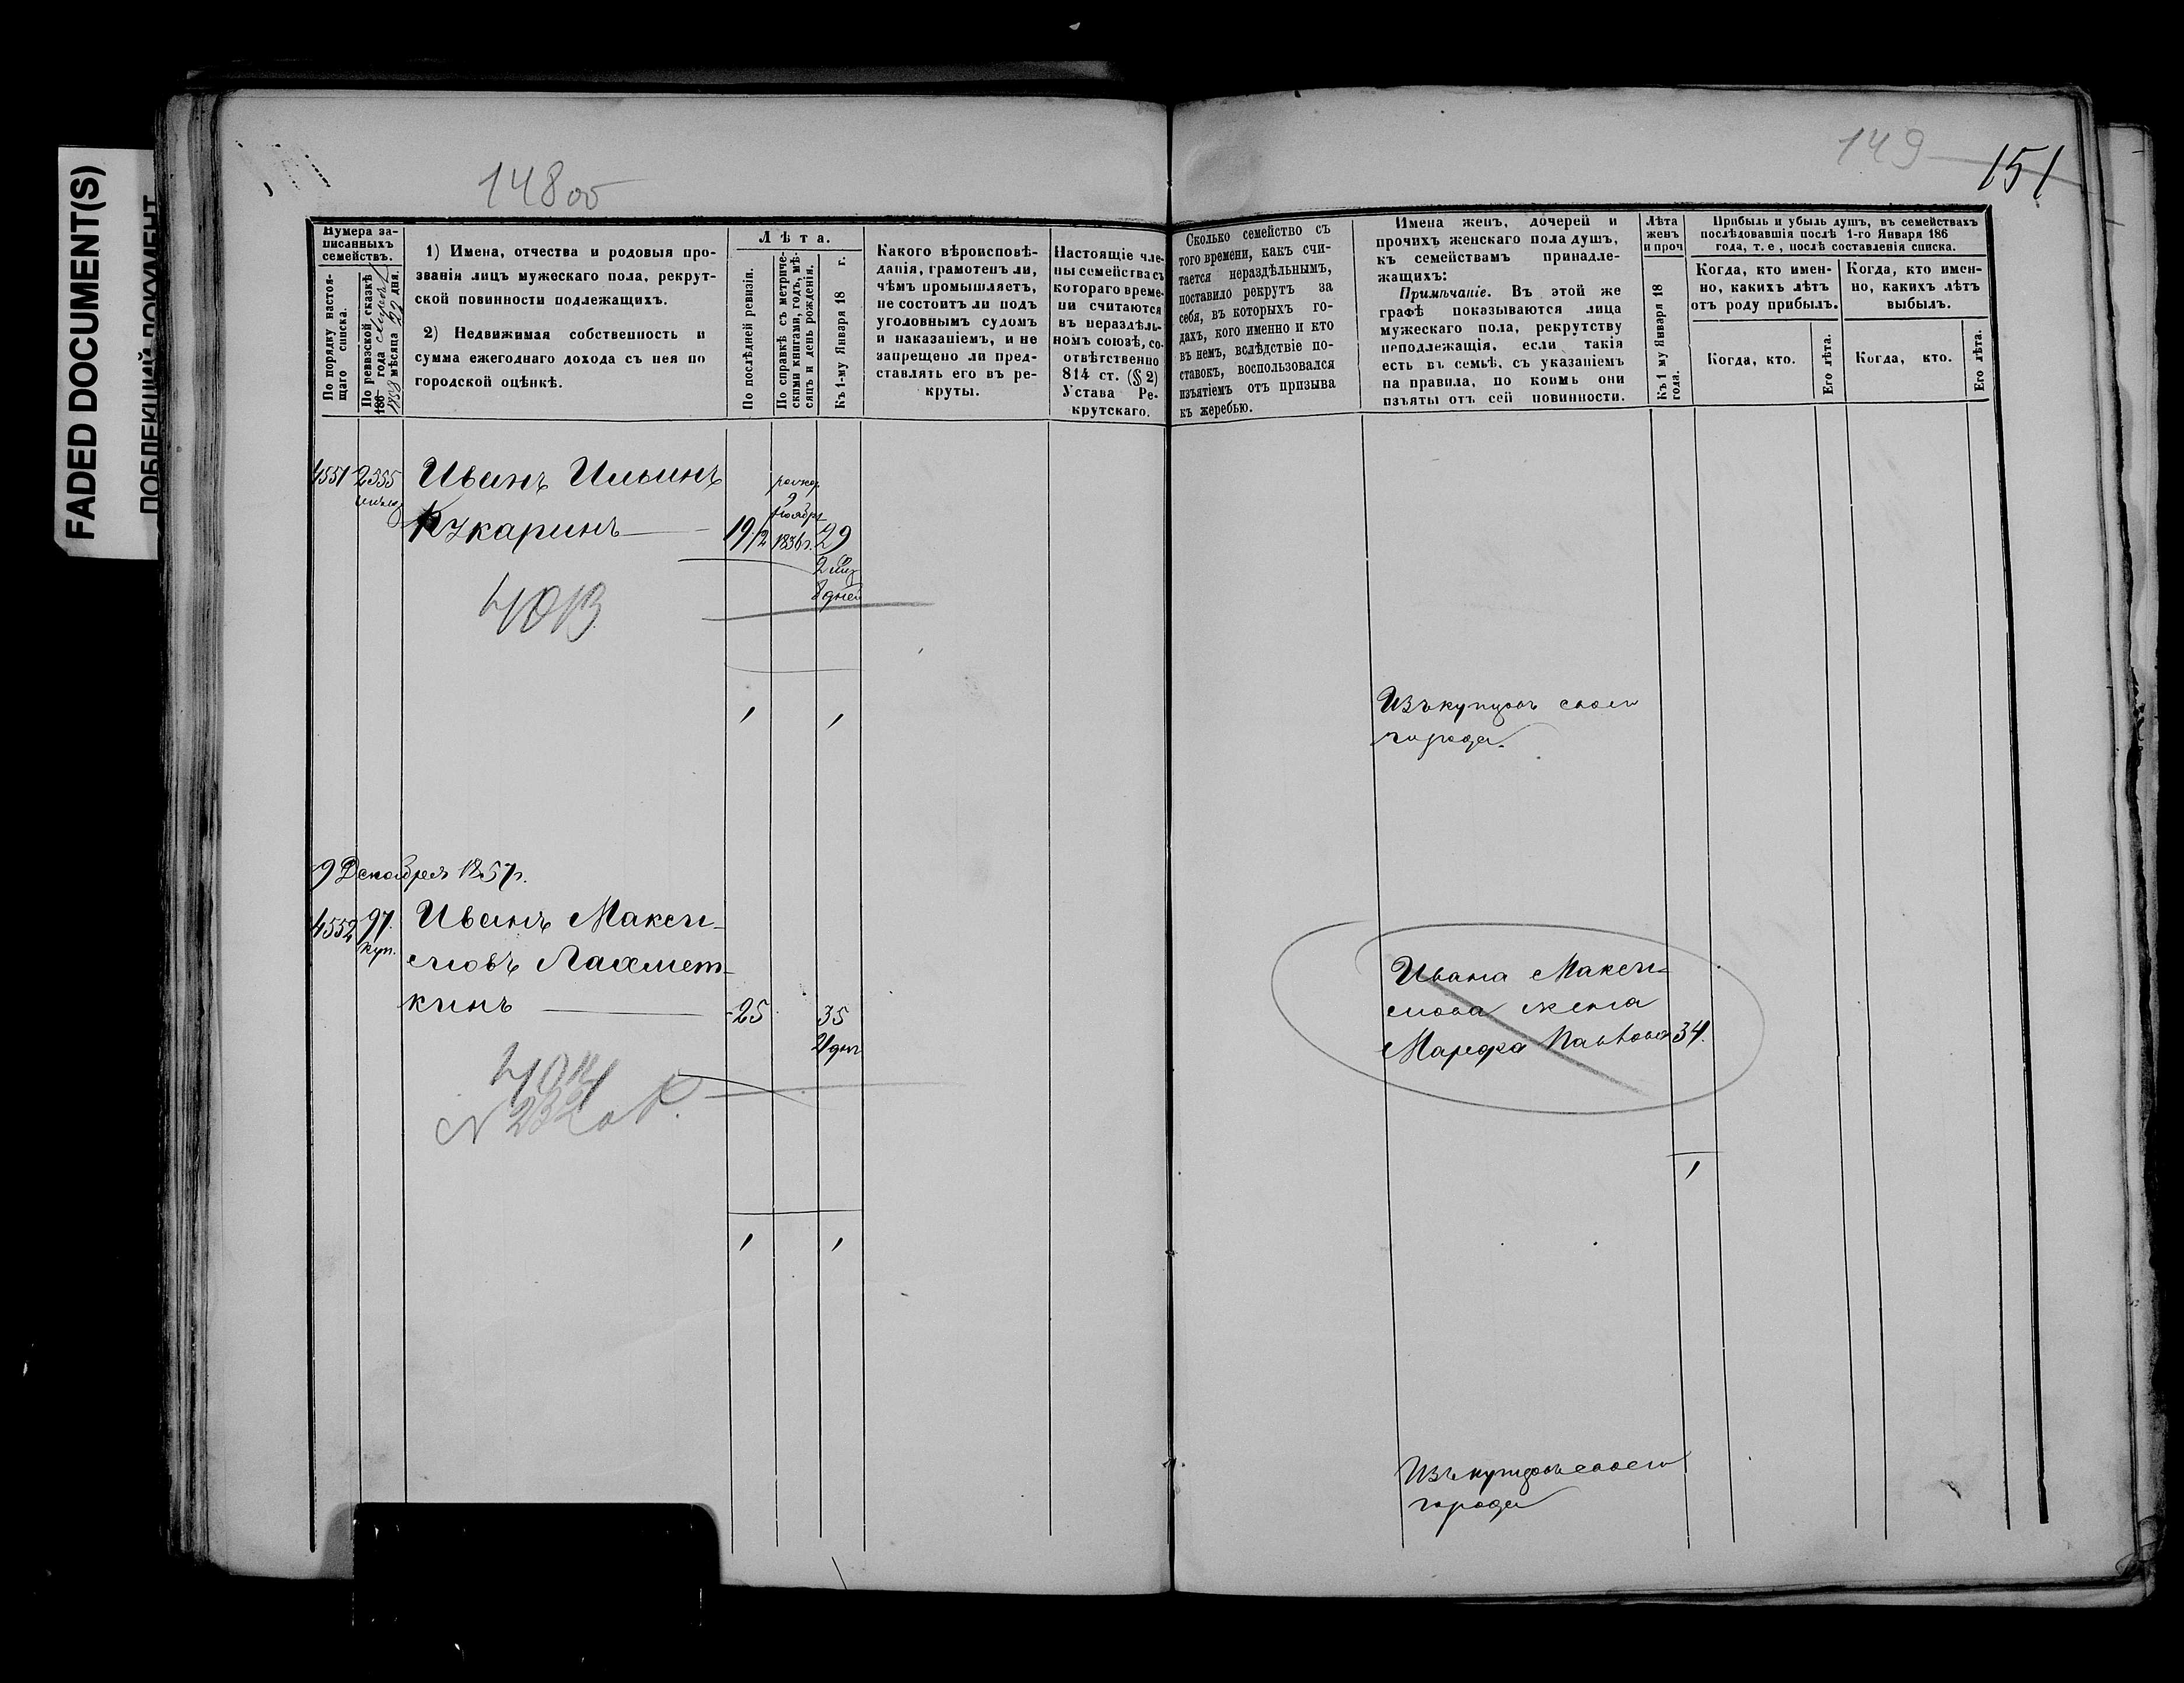 FADED DOCUMENT(S)
148 об
149
151
Нумера за-
писанныхъ
семействъ.
По порядку настоя-
щаго списка.
По ревизской сказкѣ
186 года
1858 мѣсяца 22 дня.
1) Имена, отчества и родовыя про-
званія лицъ мужескаго пола, рекрут-
ской повинности подлежащихъ.
2) Недвижимая собственность и
сумма ежегоднаго дохода съ нея по
городской оцѣнкѣ.
Лѣта.
По послѣдней ревизіи.
По справкѣ съ метриче-
скими книгами, годъ, мѣ-
сяцъ и день рожденія.
Къ 1-му Января 18 г.
Какого вѣроисповѣ-
данія, грамотенъ ли,
чѣмъ промышляетъ,
не состоитъ ли подъ
уголовнымъ судомъ
и наказаніемъ, и не
запрещено ли пред-
ставлять его въ ре-
круты.
Настоящіе чле-
ны семейства съ
котораго време-
ни считаются
въ нераздѣль-
номъ союзѣ, со-
отвѣтственно
814 ст. (§ 2)
Устава Ре-
крутскаго.
Сколько семейство съ
того времени, какъ счи-
тается нераздѣльнымъ,
поставило рекрутъ за
себя, въ которыхъ го-
дахъ, кого именно и кто
въ немъ, вслѣдствіе по-
ставокъ, воспользовался
изъятіемъ отъ призыва
къ жеребью.
Имена женъ, дочерей и
прочихъ женскаго пола душъ,
къ семействамъ принадле-
жащихъ:
Примѣчаніе. Въ этой же
графѣ показываются лица
мужескаго пола, рекрутству
неподлежащія, если такія
есть въ семьѣ, съ указаніемъ
на правила, по коимъ они
изъяты отъ сей повинности.
Лѣта
женъ
и проч
Къ 1 му Января 18
года.
Прибыль и убыль душъ, въ семействахъ
послѣдовавшія послѣ 1-го Января 186
года, т. е, послѣ составленія списка.
Когда, кто имен-
но, какихъ лѣтъ
отъ роду прибылъ.
Когда, кто имен-
но, какихъ лѣтъ
выбылъ.
Когда, кто.
Его лѣта.
Когда, кто.
Его лѣта.
4551 2355 Иванъ Ильинъ
каринъ 19/2 9 Ноября 1836 г. 29
2 мѣс
8 дней
4013
1 1
Изъ купцовъ своего
города.
9 Декабря 1857 г.
4552 97. Иванъ Макси-
куп.
мовъ Лахмет-
кинъ 25 35
21 дн
4014
N 232
Ивана Макси-
мова жена
Марфа Павлова 34.
1
1 1
Изъ купцовъ своего
города